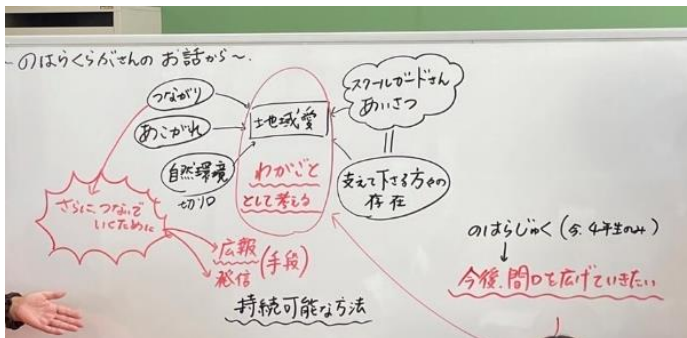 ～のはらくらぶさんの お話から～
つながり
あこがれ
自然環境
切り口
地域愛
わがごと
として考える
スクールガードさん
あいさつ
支えて下さる方々の
存在
さらに、つないで
いくために
広報
発信
(手段)
持続可能な方法
のはらじゅく(今、4年生のみ)
今後、間口を広げていきたい